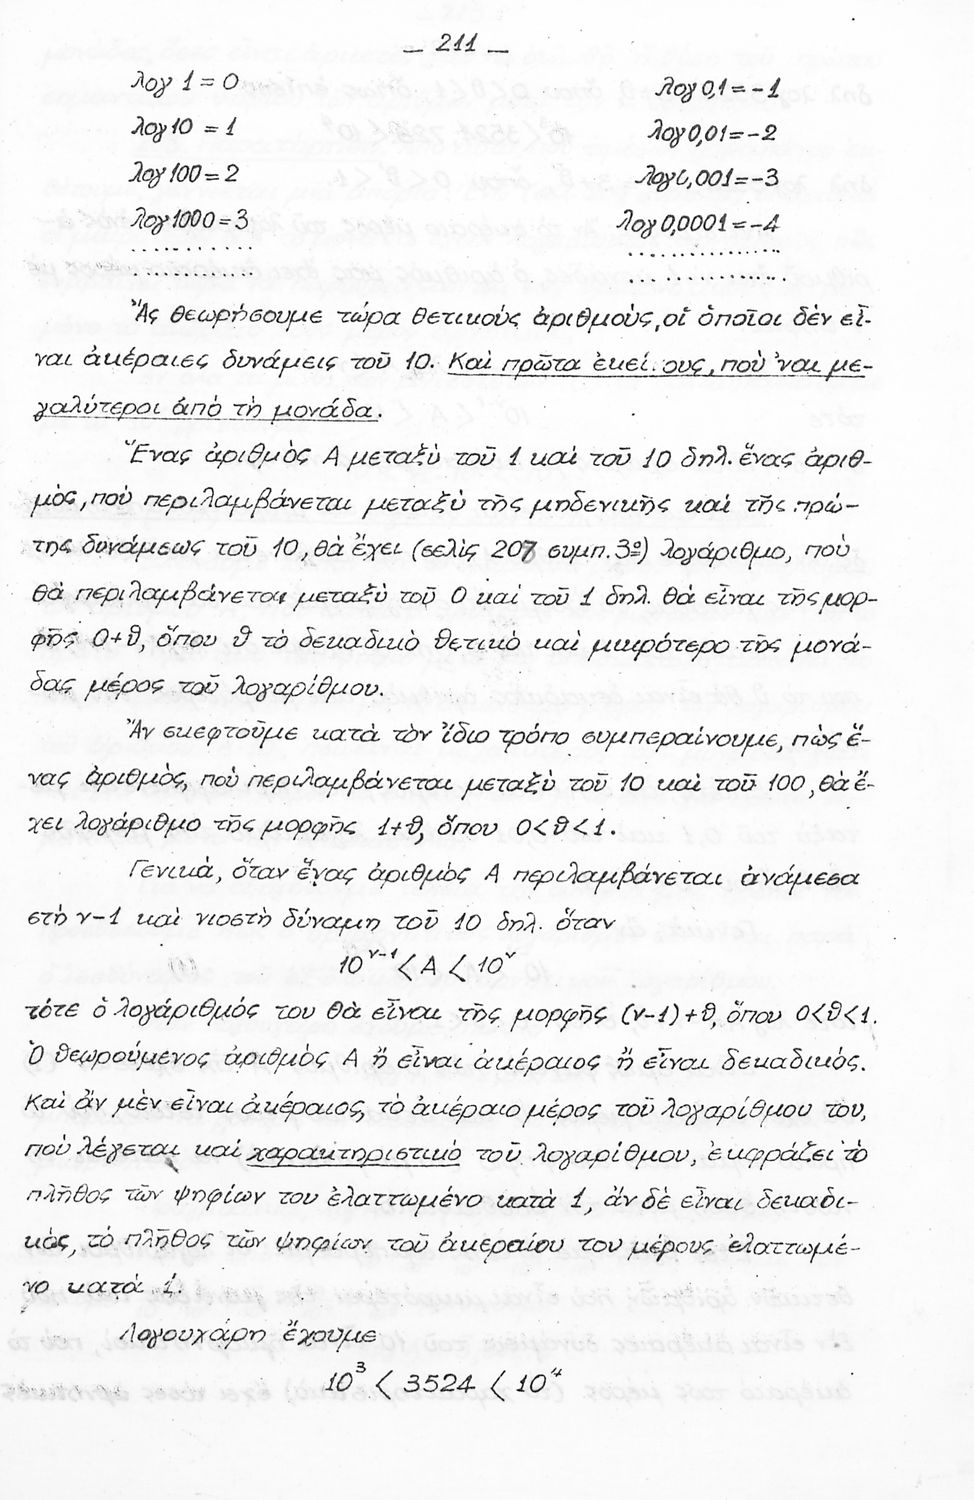 — 211 —
λογ 1 = 0 λογ 0,1 = -1
λογ 10 = 1 λογ 0,01 = -2
λογ 100 = 2 λογ 0,001 = -3
λογ 1000 = 3 λογ 0,0001 = -4
............ ............
............ ............
Ἂς θεωρήσουμε τώρα θετικοὺς ἀριθμοὺς, οἱ ὁποῖοι δὲν εἶ-
ναι ἀκέραιες δυνάμεις τοῦ 10. Καὶ πρῶτα ἐκεί.ους, ποὺ 'ναι με-
γαλύτεροι ἀπὸ τὴ μονάδα.
Ἕνας ἀριθμὸς Α μεταξὺ τοῦ 1 καὶ τοῦ 10 δηλ. ἕνας ἀριθ-
μὸς, ποὺ περιλαμβάνεται μεταξὺ τῆς μηδενικῆς καὶ τῆς πρώ-
της δυνάμεως τοῦ 10, θὰ ἔχει (σελὶς 207 συμπ. 3º) λογάριθμο, ποὺ
θὰ περιλαμβάνεται μεταξὺ τοῦ 0 καὶ τοῦ 1 δηλ. θὰ εἶναι τῆς μορ-
φῆς 0+θ, ὅπου θ τὸ δεκαδικὸ θετικὸ καὶ μικρότερο τῆς μονά-
δας μέρος τοῦ λογαρίθμου.
Ἂν σκεφτοῦμε κατὰ τὸν ἴδιο τρόπο συμπεραίνουμε, πὼς ἕ-
νας ἀριθμὸς, ποὺ περιλαμβάνεται μεταξὺ τοῦ 10 καὶ τοῦ 100, θὰ ἔ-
χει λογάριθμο τῆς μορφῆς 1+θ, ὅπου 0<θ<1.
Γενικὰ, ὅταν ἕνας ἀριθμὸς Α περιλαμβάνεται ἀνάμεσα
στὴ ν-1 καὶ νιοστὴ δύναμη τοῦ 10 δηλ. ὅταν
10^(ν-1) < Α < 10^ν
τότε ὁ λογάριθμός του θὰ εἶναι τῆς μορφῆς (ν-1)+θ, ὅπου 0<θ<1.
Ὁ θεωρούμενος ἀριθμὸς Α ἢ εἶναι ἀκέραιος ἢ εἶναι δεκαδικὸς.
Καὶ ἂν μὲν εἶναι ἀκέραιος, τὸ ἀκέραιο μέρος τοῦ λογαρίθμου του,
ποὺ λέγεται καὶ χαρακτηριστικὸ τοῦ λογαρίθμου, ἐκφράζει τὸ
πλῆθος τῶν ψηφίων του ἐλαττωμένο κατὰ 1, ἂν δὲ εἶναι δεκαδι-
κὸς, τὸ πλῆθος τῶν ψηφίων τοῦ ἀκεραίου του μέρους ἐλαττωμέ-
νο κατὰ 1.
Λογουχάρη ἔχουμε
10³ < 3524 < 10⁴